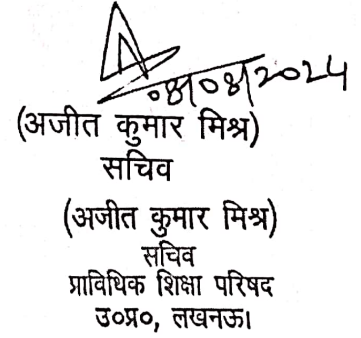 08/08/2024
(अजीत कुमार मिश्र)
सचिव
(अजीत कुमार मिश्र)
सचिव
प्राविधिक शिक्षा परिषद
उ०प्र०, लखनऊ।